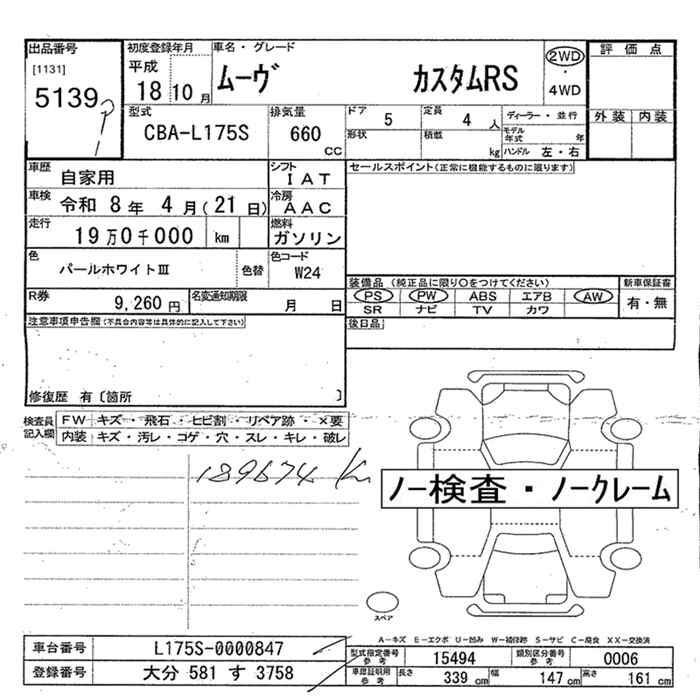 出品番号
[1131]
5139
初度登録年月
平成
18 10 月
車名・グレード
ムーヴ カスタムRS
2WD
・
4WD
評価点
外装 内装
型式
CBA-L175S
排気量
660
CC
ドア 5
形状
定員 4 人
積載 kg
ディーラー・並行
モデル年式 年
ハンドル 左・右
車歴 自家用
シフト IAT
車検 令和 8 年 4 月(21 日)
冷房 AAC
走行 19万0千000 km
燃料 ガソリン
色 パールホワイトIII 色替
色コード W24
R券 9,260 円
名変通知期限 月 日
セールスポイント(正常に機能するものに限ります)
装備品(純正品に限り○をつけてください)
新車保証書
PS PW ABS エアB AW
SR ナビ TV カワ
有・無
後日品
注意事項申告欄(不具合内容等は具体的に記入して下さい)
修復歴 有〔箇所 〕
検査員記入欄
FW キズ・飛石・ヒビ割・リペア跡・×要
内装 キズ・汚レ・コゲ・穴・スレ・キレ・破レ
189674 Km
ノー検査・ノークレーム
スペア
A-キズ E-エクボ U-凹み W-補修跡 S-サビ C-腐食 XX-交換済
車台番号 L175S-0000847
登録番号 大分 581 す 3758
型式指定番号 参考 15494
類別区分番号 参考 0006
車庫証明用 参考 長さ 339 cm 幅 147 cm 高さ 161 cm